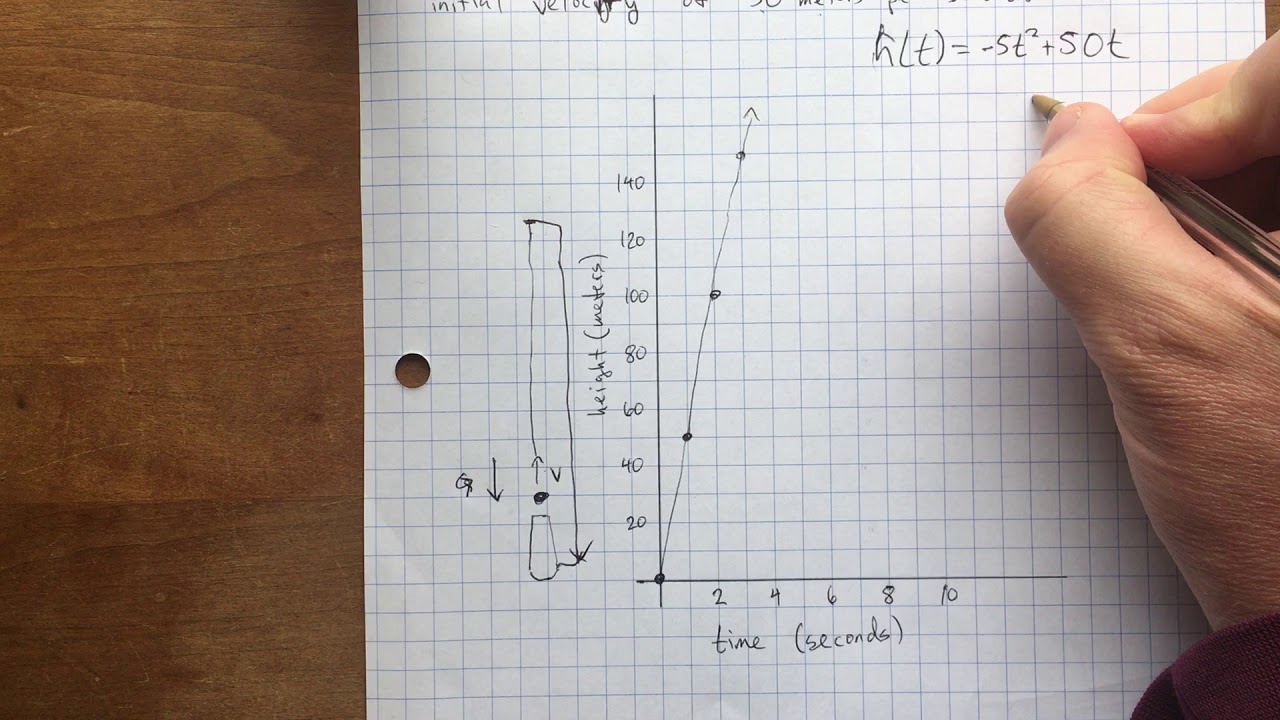 initial velocity of 50 meters
h(t) = -5t²+50t
140
120
100
80
60
40
20
height (meters)
G
V
2 4 6 8 10
time (seconds)